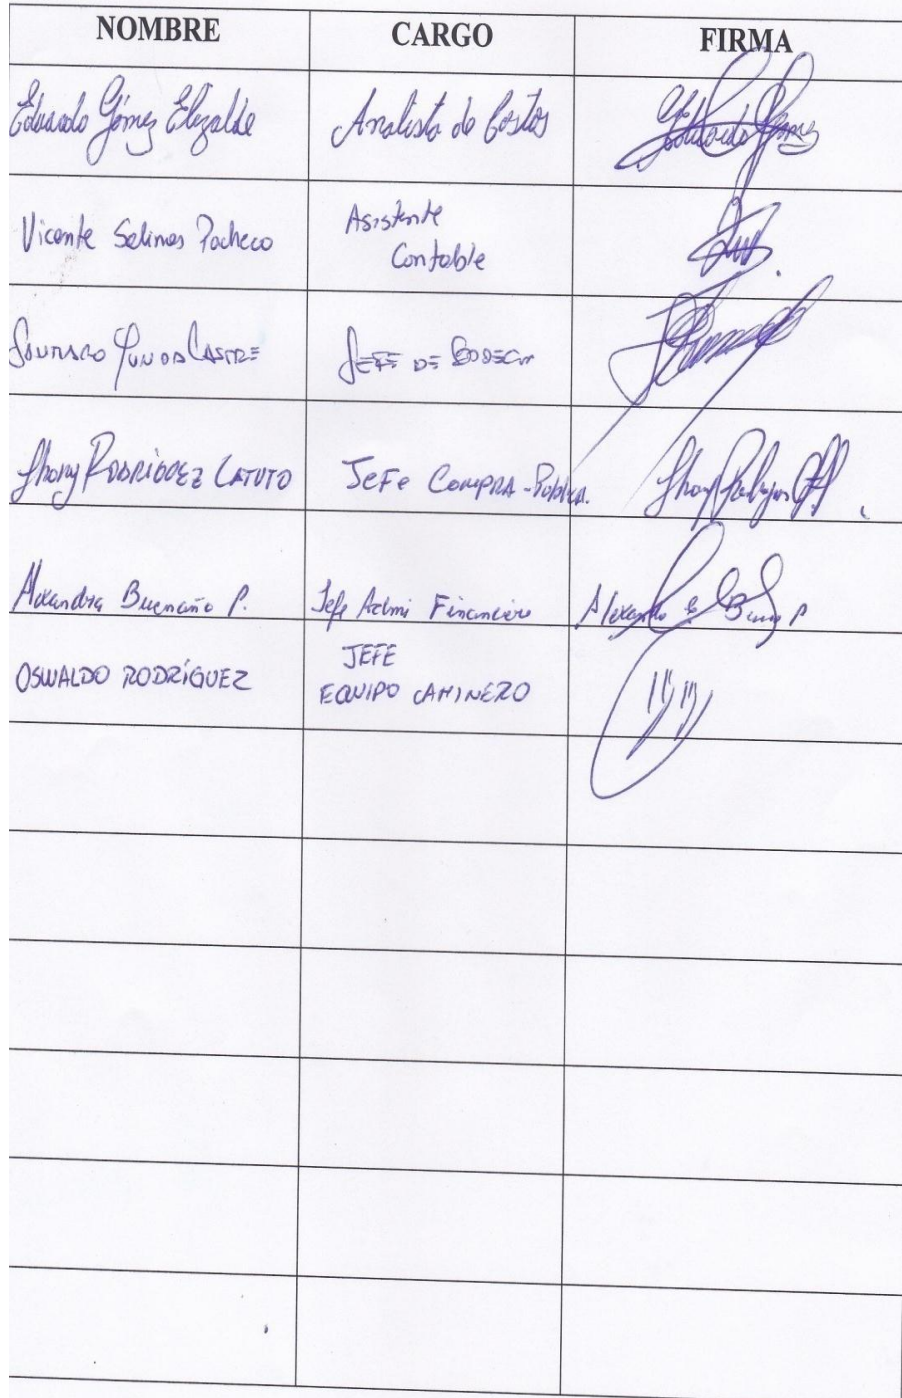 NOMBRE CARGO FIRMA
Eduardo Gómez Elizalde Analista de Costos Eduardo Gómez
Vicente Salinas Pacheco Asistente
Contable
JEFE DE BODEGA
Jhony RODRIGUEZ CATUTO JEFE COMPRA-Publica. Jhony
Alexandra Buenaño P. Jefe Admi Financiero Alexandra
OSWALDO RODRÍGUEZ JEFE
EQUIPO CAMINERO